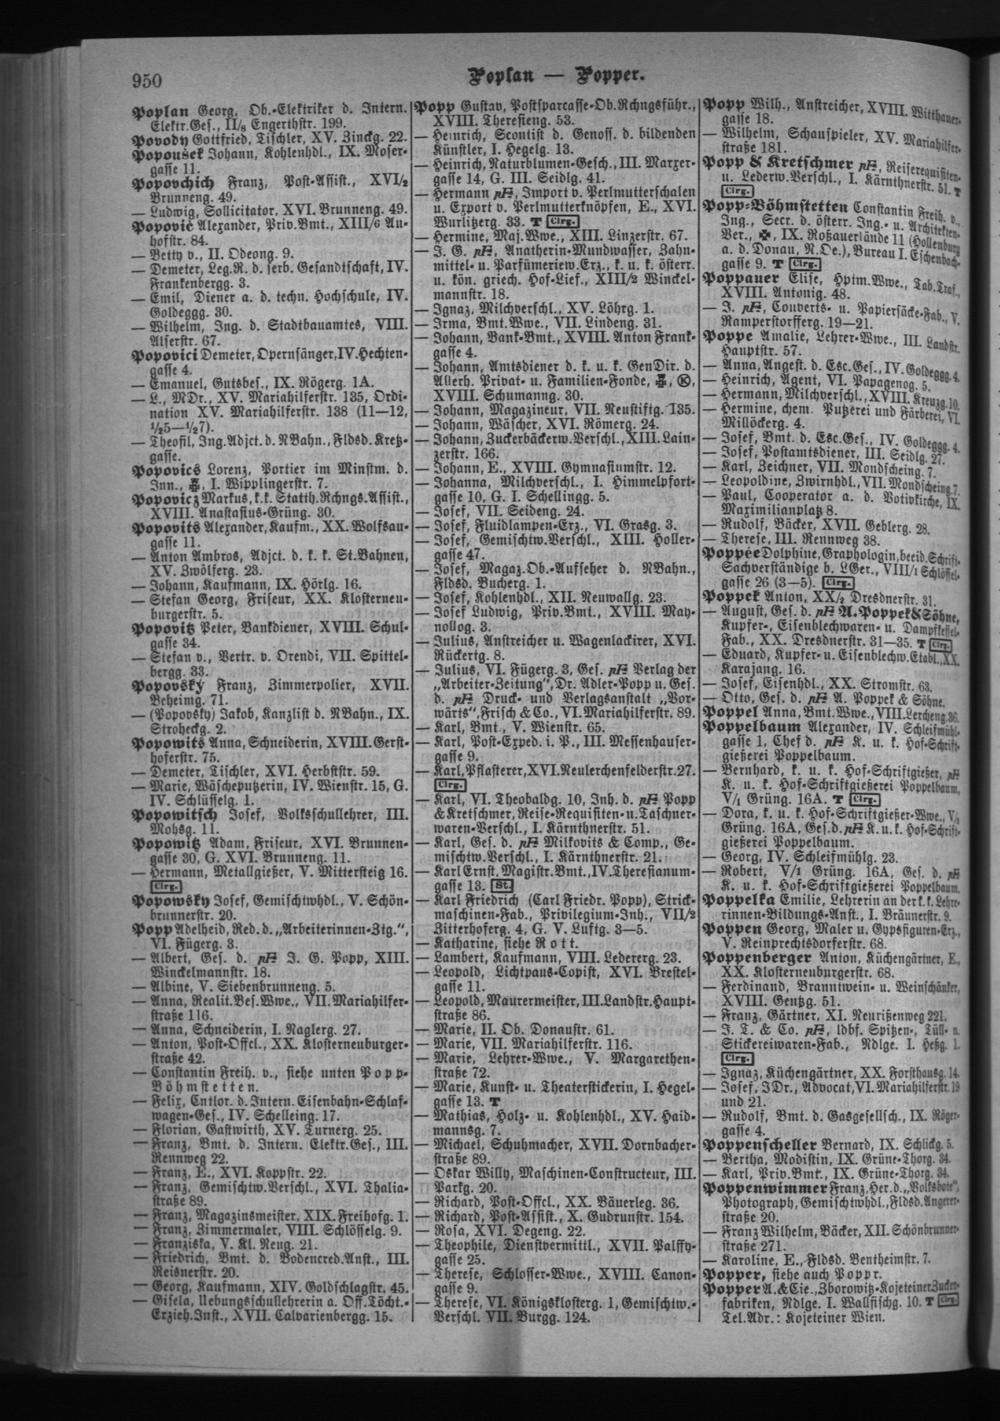 950
Poplan — Popper.
Poplan Georg, Ob.-Elektriker d. Intern.
Elektr.Ges., II/8 Engerthstr. 199.
Povody Gottfried, Tischler, XV. Zinckg. 22.
Popoušek Johann, Kohlenhdl., IX. Moser-
gasse 11.
Popovchich Franz, Post-Assist., XVI/2
Brunneng. 49.
— Ludwig, Sollicitator, XVI. Brunneng. 49.
Popović Alexander, Priv.Bmt., XIII/6 Au-
hofstr. 84.
— Betty v., II. Odeong. 9.
— Demeter, Leg.R. d. serb. Gesandtschaft, IV.
Frankenbergg. 3.
— Emil, Diener a. d. techn. Hochschule, IV.
Goldeggg. 30.
— Wilhelm, Ing. d. Stadtbauamtes, VIII.
Alserstr. 67.
Popovici Demeter, Opernsänger, IV. Hechten-
gasse 4.
— Emanuel, Gutsbes., IX. Rögerg. 1A.
— L., MDr., XV. Mariahilferstr. 135, Ordi-
nation XV. Mariahilferstr. 138 (11—12,
½5—½7).
— Theofil, Ing.Adjct. d. NBahn., Fldsd. Kretz-
gasse.
Popovics Lorenz, Portier im Minstm. d.
Inn., I. Wipplingerstr. 7.
Popovicz Markus, k.k. Statth.Rchngs.Assist.,
XVIII. Anastasius-Grüng. 30.
Popovits Alexander, Kaufm., XX. Wolfsau-
gasse 11.
— Anton Ambros, Adjct. d. k. k. St.Bahnen,
XV. Zwölferg. 23.
— Johann, Kaufmann, IX. Hörlg. 16.
— Stefan Georg, Friseur, XX. Klosterneu-
burgerstr. 5.
Popovitz Peter, Bankdiener, XVIII. Schul-
gasse 34.
— Stefan v., Vertr. v. Orendi, VII. Spittel-
bergg. 33.
Popovský Franz, Zimmerpolier, XVII.
Beheimg. 71.
— (Popovsky) Jakob, Kanzlist d. NBahn., IX.
Strohechg. 2.
Popowits Anna, Schneiderin, XVIII. Gerst-
hoferstr. 75.
— Demeter, Tischler, XVI. Herbststr. 59.
— Marie, Wäscheputzerin, IV. Wienstr. 15, G.
IV. Schlüsselg. 1.
Popowitsch Josef, Volksschullehrer, III.
Mohsg. 11.
Popowitz Adam, Friseur, XVI. Brunnen-
gasse 30, G. XVI. Brunneng. 11.
— Hermann, Metallgießer, V. Mittersteig 16.
Clrg.
Popowsky Josef, Gemischtwhdl., V. Schön-
brunnerstr. 20.
Popp Adelheid, Red. d. „Arbeiterinnen-Ztg.“,
VI. Fügerg. 3.
— Albert, Ges. d. J. G. Popp, XIII.
Winckelmannstr. 18.
— Albine, V. Siebenbrunneng. 5.
— Anna, Realit.Bes.Wwe., VII. Mariahilfer-
straße 116.
— Anna, Schneiderin, I. Naglerg. 27.
— Anton, Post-Offcl., XX. Klosterneuburger-
straße 42.
— Constantin Freih. v., siehe unten Popp-
Böhmstetten.
— Felix, Cntlor. d. Intern. Eisenbahn-Schlaf-
wagen-Ges., IV. Schelleing. 17.
— Florian, Gastwirth, XV. Turnerg. 25.
— Franz, Bmt. d. Intern. Elektr.Ges., III.
Rennweg 22.
— Franz, E., XVI. Koppstr. 22.
— Franz, Gemischtw.Verschl., XVI. Thalia-
straße 89.
— Franz, Magazinsmeister, XIX. Freihofg. 1.
— Franz, Zimmermaler, VIII. Schlösselg. 9.
— Franziska, V. Kl. Neug. 21.
— Friedrich, Bmt. d. Bodencred.Anst., III.
Reisnerstr. 20.
— Georg, Kaufmann, XIV. Goldschlagstr. 45.
— Gisela, Uebungsschullehrerin a. Off.Töcht.-
Erzieh.Inst., XVII. Calvarienbergg. 15.
Popp Gustav, Postsparcasse-Ob.Rchngsführ.,
XVIII. Theresieng. 53.
— Heinrich, Scontist d. Genoss. d. bildenden
Künstler, I. Hegelg. 13.
— Heinrich, Naturblumen-Gesch., III. Marxer-
gasse 14, G. III. Seidlg. 41.
— Hermann, Import v. Perlmutterschalen
u. Export v. Perlmutterknöpfen, E., XVI.
Wurlitzerg. 33. T Clrg.
— Hermine, Maj.Wwe., XIII. Linzerstr. 67.
— J. G., Anatherin-Mundwasser, Zahn-
mittel- u. Parfümeriew.Erz., k. u. k. österr.
u. kön. griech. Hof-Lief., XIII/2 Winckel-
mannstr. 18.
— Ignaz, Milchverschl., XV. Löhrg. 1.
— Irma, Bmt.Wwe., VII. Lindeng. 31.
— Johann, Bank-Bmt., XVIII. Anton Frank-
gasse 4.
— Johann, Amtsdiener d. k. u. k. GenDir. d.
Allerh. Privat- u. Familien-Fonde,
XVIII. Schumanng. 30.
— Johann, Magazineur, VII. Neustiftg. 135.
— Johann, Wäscher, XVI. Römerg. 24.
— Johann, Zuckerbäckerw.Verschl., XIII. Lain-
zerstr. 166.
— Johann, E., XVIII. Gymnasiumstr. 12.
— Johanna, Milchverschl., I. Himmelpfort-
gasse 10, G. I. Schellingg. 5.
— Josef, VII. Seideng. 24.
— Josef, Fluidlampen-Erz., VI. Grasg. 3.
— Josef, Gemischtw.Verschl., XIII. Holler-
gasse 47.
— Josef, Magaz.Ob.-Aufseher d. NBahn.,
Fldsd. Bucherg. 1.
— Josef, Kohlenhdl., XII. Neuwallg. 23.
— Josef Ludwig, Priv.Bmt., XVIII. May-
nollog. 3.
— Julius, Anstreicher u. Wagenlackirer, XVI.
Rückertg. 8.
— Julius, VI. Fügerg. 3, Ges. Verlag der
„Arbeiter-Zeitung“, Dr. Adler-Popp u. Ges.
d. Druck- und Verlagsanstalt „Vor-
wärts“, Frisch & Co., VI. Mariahilferstr. 89.
— Karl, Bmt., V. Wienstr. 65.
— Karl, Post-Exped. i. P., III. Messenhauser-
gasse 9.
— Karl, Pflasterer, XVI. Neulerchenfelderstr. 27.
Clrg.
— Karl, VI. Theobaldg. 10, Inh. d. Popp
& Kretschmer, Reise-Requisiten- u. Taschner-
waren-Verschl., I. Kärnthnerstr. 51.
— Karl, Ges. d. Milkovits & Comp., Ge-
mischtw.Verschl., I. Kärnthnerstr. 21.
— Karl Ernst, Magistr.Bmt., IV. Theresianum-
gasse 13. St.
— Karl Friedrich (Carl Friedr. Popp), Strick-
maschinen-Fab., Privilegium-Inh., VII/2
Zitterhoferg. 4, G. V. Luftg. 3—5.
— Katharine, siehe Rott.
— Lambert, Kaufmann, VIII. Ledererg. 23.
— Leopold, Lichtpaus-Copist, XVI. Brestel-
gasse 11.
— Leopold, Maurermeister, III. Landstr.Haupt-
straße 86.
— Marie, II. Ob. Donaustr. 61.
— Marie, VII. Mariahilferstr. 116.
— Marie, Lehrer-Wwe., V. Margarethen-
straße 72.
— Marie, Kunst- u. Theaterstickerin, I. Hegel-
gasse 13. T
— Mathias, Holz- u. Kohlenhdl., XV. Haid-
mannsg. 7.
— Michael, Schuhmacher, XVII. Dornbacher-
straße 89.
— Oskar Willy, Maschinen-Constructeur, III.
Parkg. 20.
— Richard, Post-Offcl., XX. Bäuerleg. 36.
— Richard, Post-Assist., X. Gudrunstr. 154.
— Rosa, XVI. Degeng. 22.
— Theophile, Dienstvermittl., XVII. Palffy-
gasse 25.
— Therese, Schlosser-Wwe., XVIII. Canon-
gasse 9.
— Therese, VI. Königsklosterg. 1, Gemischtw.-
Verschl. VII. Burgg. 124.
Popp Wilh., Anstreicher, XVIII. Witthauer-
gasse 18.
— Wilhelm, Schauspieler, XV. Mariahilfer-
straße 181.
Popp & Kretschmer, Reiserequisiten-
u. Lederw.Verschl., I. Kärnthnerstr. 51. T
Clrg.
Popp-Böhmstetten Constantin Freih. v.,
Ing., Secr. d. österr. Ing.- u. Architekten-
Ver., IX. Roßauerlände 11 (Hollenburg
a. d. Donau, N.Oe.), Bureau I. Eschenbach-
gasse 9. T Clrg.
Poppauer Elise, Hptm.Wwe., Tab.Traf.,
XVIII. Antonig. 48.
— J., Couverts- u. Papiersäcke-Fab., V.
Ramperstorfferg. 19—21.
Poppe Amalie, Lehrer-Wwe., III. Landstr.
Hauptstr. 57.
— Anna, Angest. d. Esc.Ges., IV. Goldeggg. 4.
— Heinrich, Agent, VI. Papagenog. 5.
— Hermann, Milchverschl., XVIII. Kreuzg. 10.
— Hermine, chem. Putzerei und Färberei, VI.
Millöckerg. 4.
— Josef, Bmt. d. Esc.Ges., IV. Goldeggg. 4.
— Josef, Postamtsdiener, III. Seidlg. 27.
— Karl, Zeichner, VII. Mondscheing. 7.
— Leopoldine, Zwirnhdl., VII. Mondscheing. 7.
— Paul, Cooperator a. d. Votivkirche, IX.
Maximilianplatz 8.
— Rudolf, Bäcker, XVII. Geblerg. 28.
— Therese, III. Rennweg 38.
Poppée Dolphine, Graphologin, beeid. Schrift-
Sachverständige b. LGer., VIII/1 Schlössel-
gasse 26 (3—5). Clrg.
Poppek Anton, XX/2 Dresdnerstr. 31.
— August, Ges. d. A. Poppek & Söhne,
Kupfer-, Eisenblechwaren- u. Dampfkessel-
Fab., XX. Dresdnerstr. 31—35. T Clrg.
— Eduard, Kupfer- u. Eisenblechw.Etabl., XX.
Karajang. 16.
— Josef, Eisenhdl., XX. Stromstr. 63.
— Otto, Ges. d. A. Poppek & Söhne.
Poppel Anna, Bmt.Wwe., VIII. Lercheng. 36.
Poppelbaum Alexander, IV. Schleifmühl-
gasse 1, Chef d. K. u. k. Hof-Schrift-
gießerei Poppelbaum.
— Bernhard, k. u. k. Hof-Schriftgießer,
K. u. k. Hof-Schriftgießerei Poppelbaum,
V/1 Grüng. 16A. T Clrg.
— Dora, k. u. k. Hof-Schriftgießer-Wwe., V/1
Grüng. 16A, Ges. d. K. u. k. Hof-Schrift-
gießerei Poppelbaum.
— Georg, IV. Schleifmühlg. 23.
— Robert, V/1 Grüng. 16A, Ges. d.
K. u. k. Hof-Schriftgießerei Poppelbaum.
Poppelka Emilie, Lehrerin an der k. k. Lehre-
rinnen-Bildungs-Anst., I. Bräunerstr. 9.
Poppen Georg, Maler u. Gypsfiguren-Erz.,
V. Reinprechtsdorferstr. 68.
Poppenberger Anton, Küchengärtner, E.,
XX. Klosterneuburgerstr. 68.
— Ferdinand, Branntwein- u. Weinschänker,
XVIII. Gentzg. 51.
— Franz, Gärtner, XI. Neurißenweg 221.
— J. T. & Co., ldbf. Spitzen-, Tüll- u.
Stickereiwaren-Fab., Ndlge. I. Heßg. 1.
Clrg.
— Ignaz, Küchengärtner, XX. Forsthausg. 14.
— Josef, JDr., Advocat, VI. Mariahilferstr. 19
und 21.
— Rudolf, Bmt. d. Gasgesellsch., IX. Röger-
gasse 4.
Poppenscheller Bernard, IX. Schlickg. 5.
— Bertha, Modistin, IX. Grüne-Thorg. 34.
— Karl, Priv.Bmt., IX. Grüne-Thorg. 34.
Poppenwimmer Franz, Her. d. „Volksbote“,
Photograph, Gemischtwhdl., Fldsd. Angerer-
straße 20.
— Franz Wilhelm, Bäcker, XII. Schönbrunner-
straße 271.
— Karoline, E., Fldsd. Bentheimstr. 7.
Popper, siehe auch Poppr.
Popper A. & Cie., Zborowitz-Kojeteiner Zucker-
fabriken, Ndlge. I. Wallfischg. 10. T Clrg.
Tel.Adr.: Kojeteiner Wien.